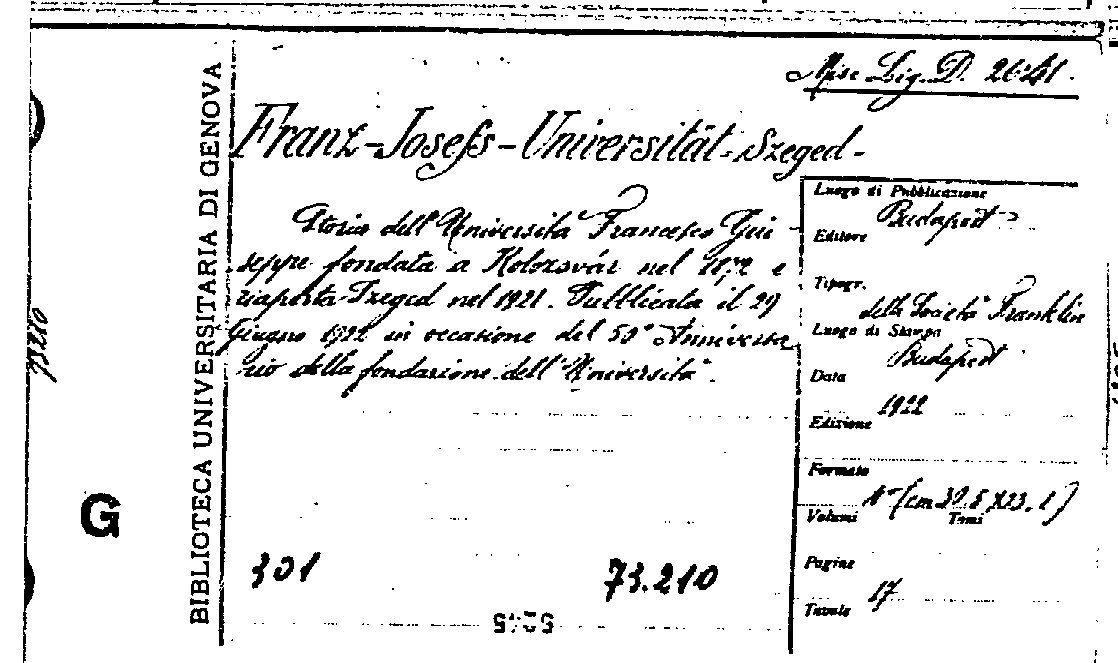 Misc Lig. D. 26.41.
Franz-Josefs-Universität-Szeged-
Storia dell'Università Francesco Giu-
seppe fondata a Kolozsvár nel 1872 e
riaperta Szeged nel 1921. Pubblicata il 29
Giugno 1922 in occasione del 50° Anniversa
rio della fondazione dell'Università.
301
73.210
BIBLIOTECA UNIVERSITARIA DI GENOVA
73210
G
Luogo di Pubblicazione
Budapest
Editore
Tipogr.
della Società Franklin
Luogo di Stampa
Budapest
Data
1922
Edizione
Formato
(cm 32.5 X23.1)
Volumi Tomi
Pagine
17
Tavole